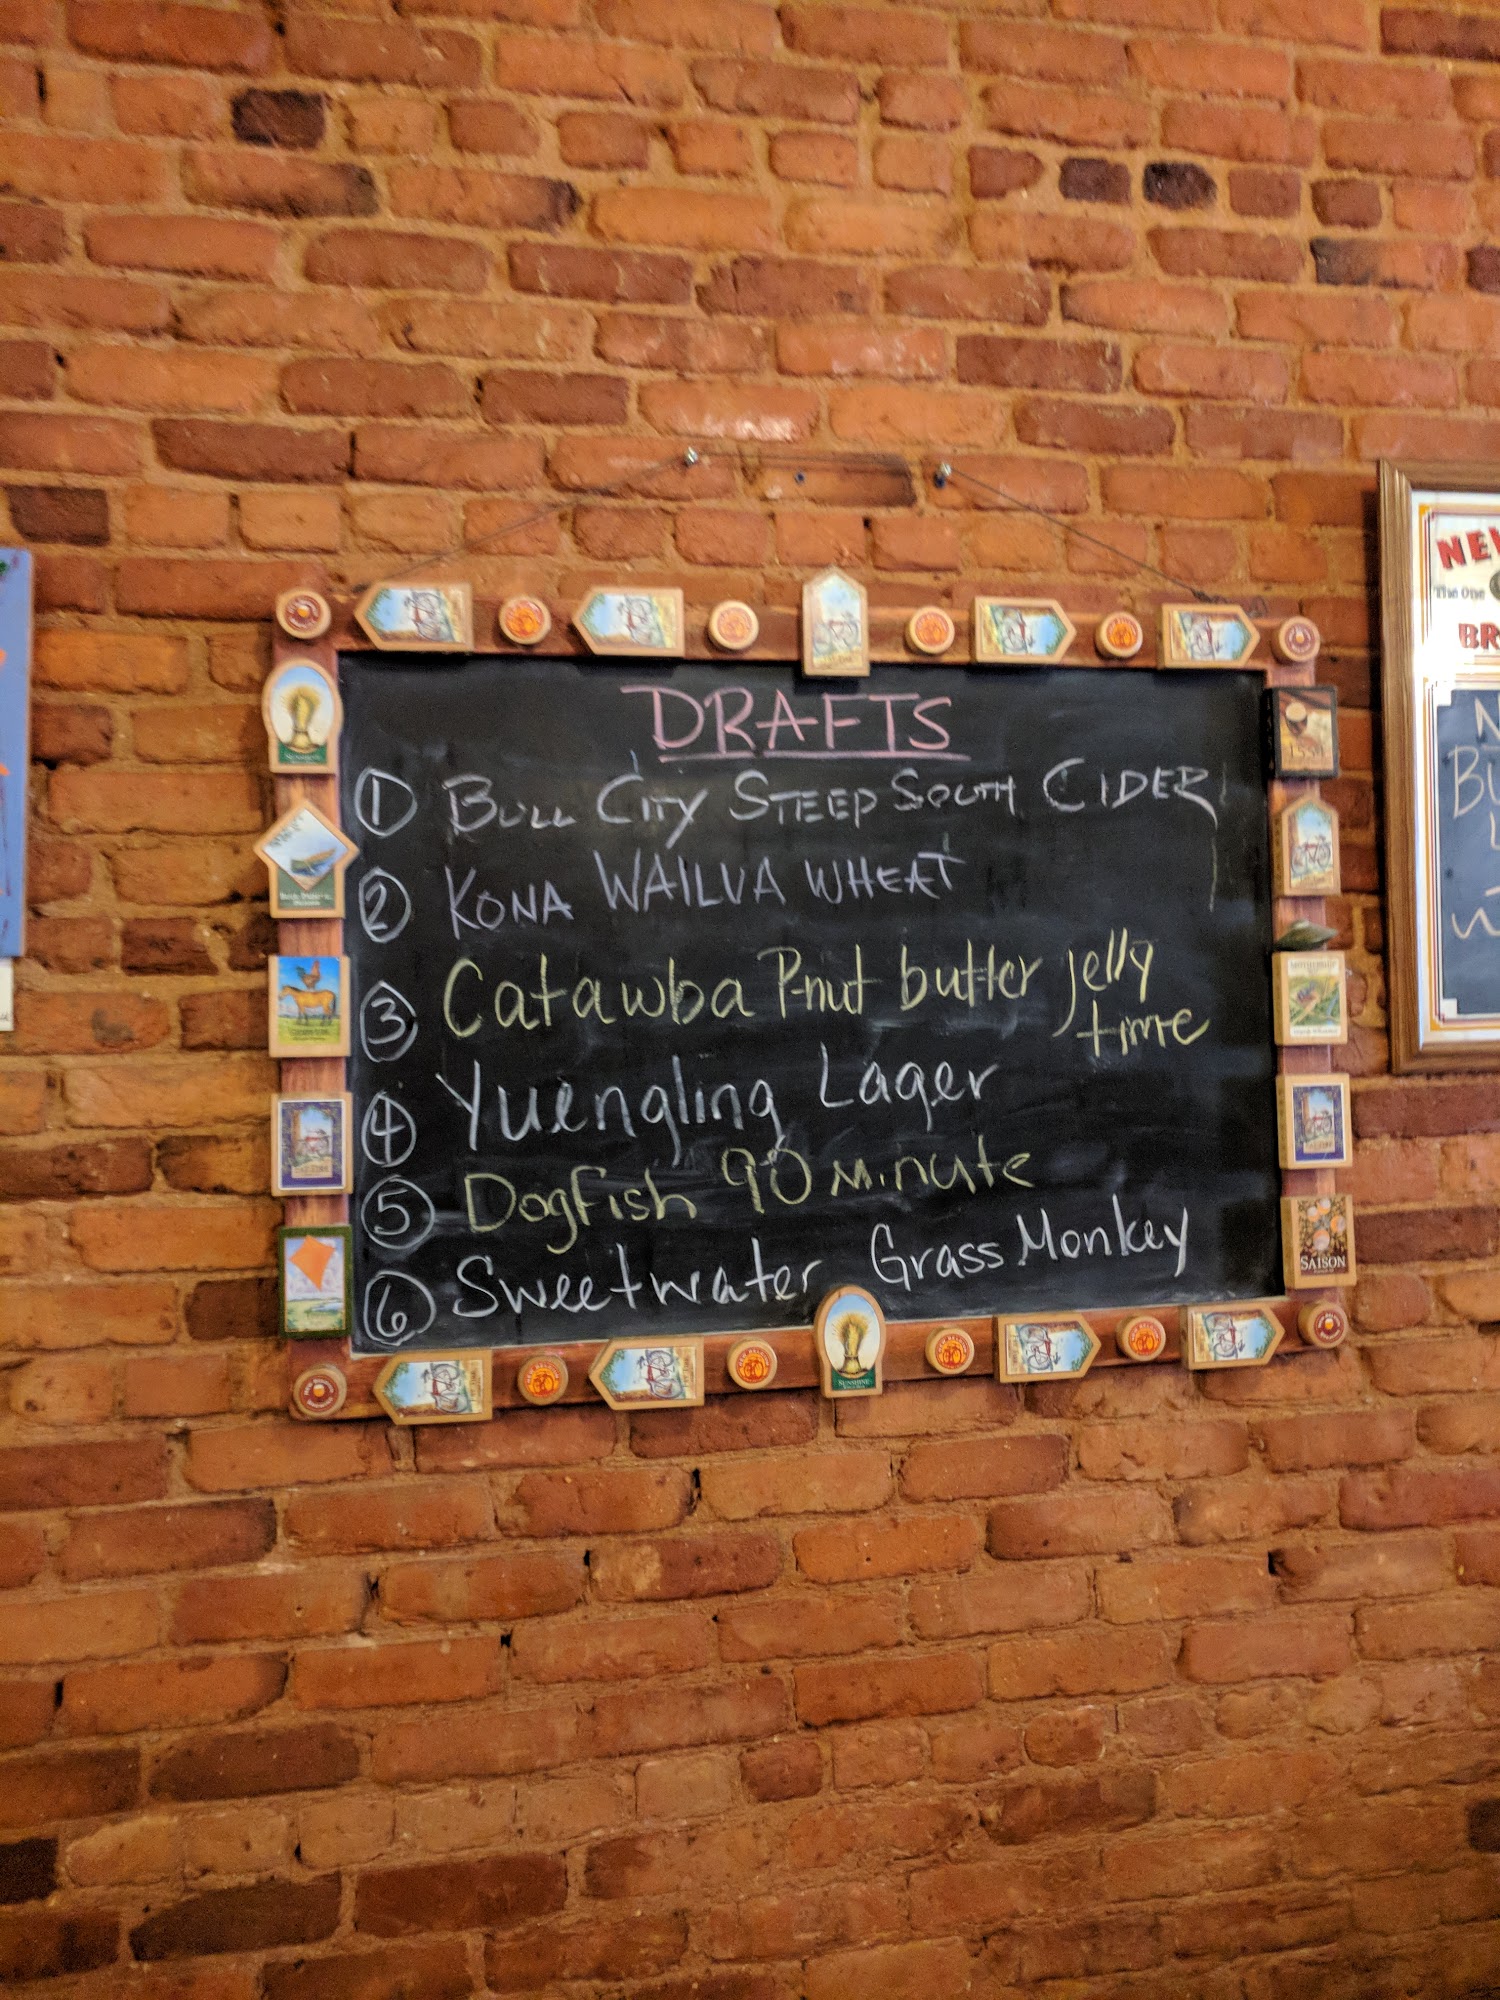 DRAFTS
1 BULL CITY STEEP SOUTH CIDER
2 KONA WAILUA WHEAT
3 Catawba P-nut butter jelly
time
4 Yuengling Lager
5 Dogfish 90 Minute
6 Sweetwater Grass Monkey
SUNSHINE
SAISON
1554
The One
BR